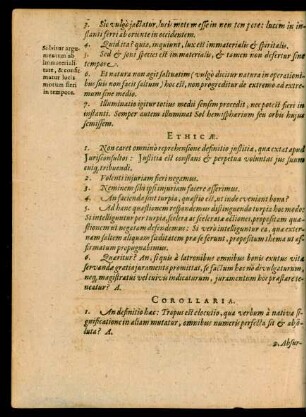 3. Sic vulgò jactatur, luci motum esse in non tempore: lucem in instanti ferri ab oriente in occidentem.
Solvitur argumentum ab immaterialitate, & confirmatur lucis motum fieri in tempore.
4. Quid ita? quia, inquiunt, lux est immaterialis & spiritalis.
5. Sed & sensus species est immaterialis, & tamen non defertur sine tempore.
6. Et natura non agit saltuatim (vulgò dicitur natura in operationibus suis non facit saltum) hoc est, non progreditur de extremo ad extremum sine medio.
7. Illuminatio igitur totius medii sensim procedit, nec potest fieri in instanti. Semper autem illuminat Sol hemisphærium seu orbis hujus semissem.
ETHICÆ.
1. Non caret omnino reprehensione definitio justitiæ, quæ extat apud Jurisconsultos: Justitia est constans & perpetua voluntas jus suum cuiq; tribuendi.
2. Volenti injuriam fieri negamus.
3. Neminem sibi ipsi injuriam facere asserimus.
4. An facienda sint turpia, quæsitum est, ut inde eveniant bona?
5. Ad hanc quæstionem respondemus distinguendo turpia hoc modo:
Si intelliguntur per turpia, scelera ac scelerata actiones, propositam quæstionem ut negatam defendimus: Si verò intelliguntur ea, quæ externam saltem aliquam fœditatem præ se ferunt, propositum thema ut affirmatum propugnabimus.
6. Quæritur? An, si quis à latronibus omnibus bonis exutus vitæ servandæ gratia juramento promittat, se factum hoc nõ divulgaturum, neq; magistratui vel turvis indicaturum, juramentum hoc præstare teneatur? A.
COROLLARIA.
1. An definitio hæc: Tropus est elocutio, qua verbum à nativa significatione in aliam mutatur, omnibus numeris perfecta sit & absoluta? A.
2. Absur-